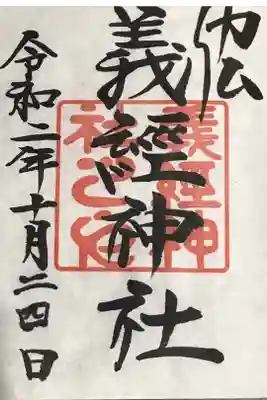 義經神社
義經神
社之
令和二年十月二四日